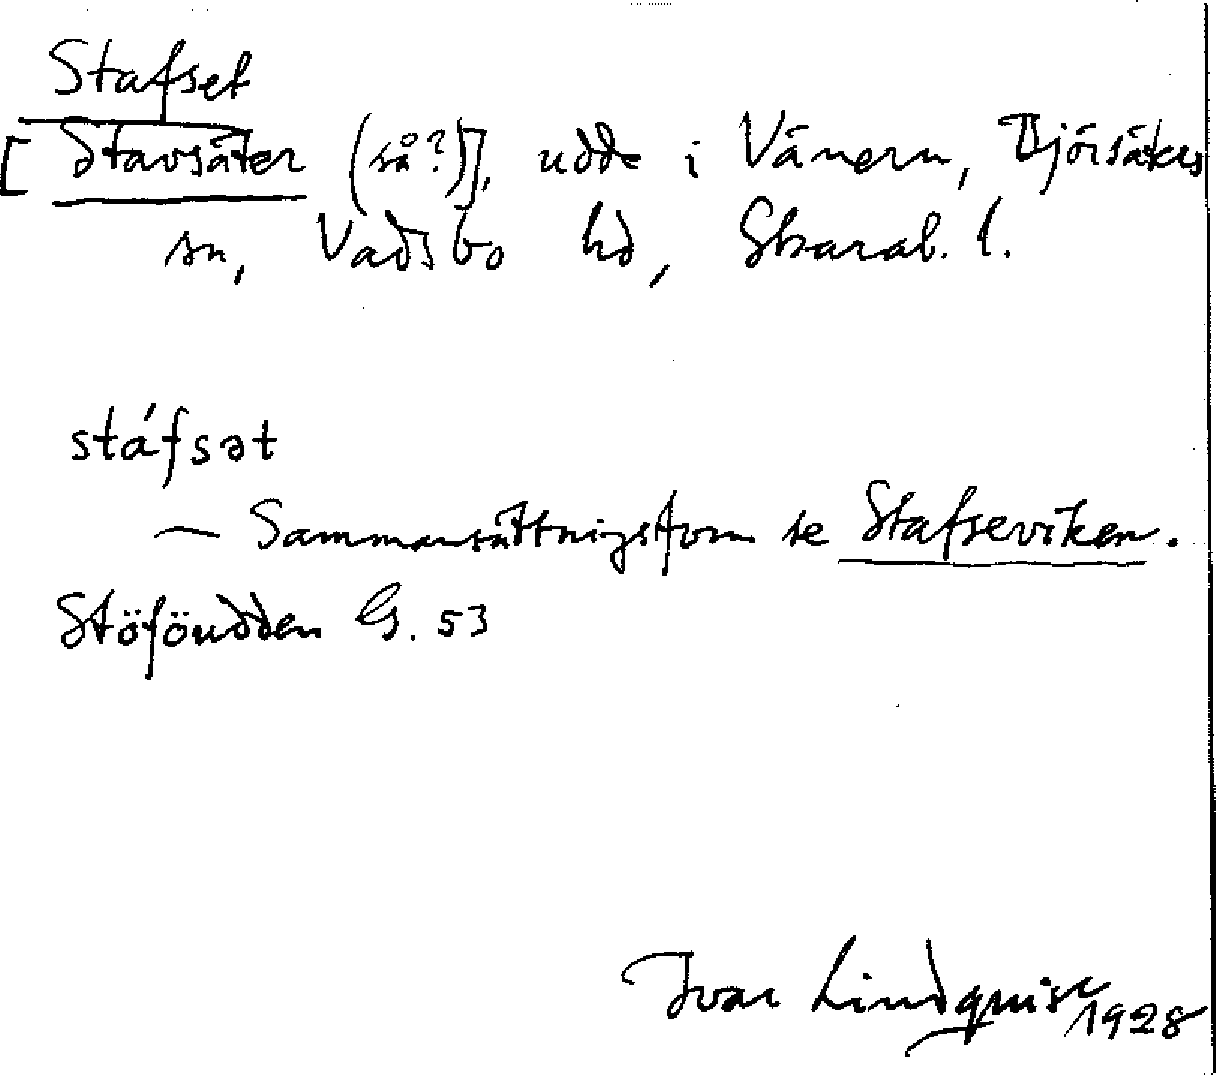 Stafset
[Stavsäter (så?)], udde i Vänern, Björsäters
sn, Vadsbo hd, Skarab. l.
stáfsət
— Sammansättningsform se Stafseviken.
Stöföudden G. 53
Ivar Lindquist
1928